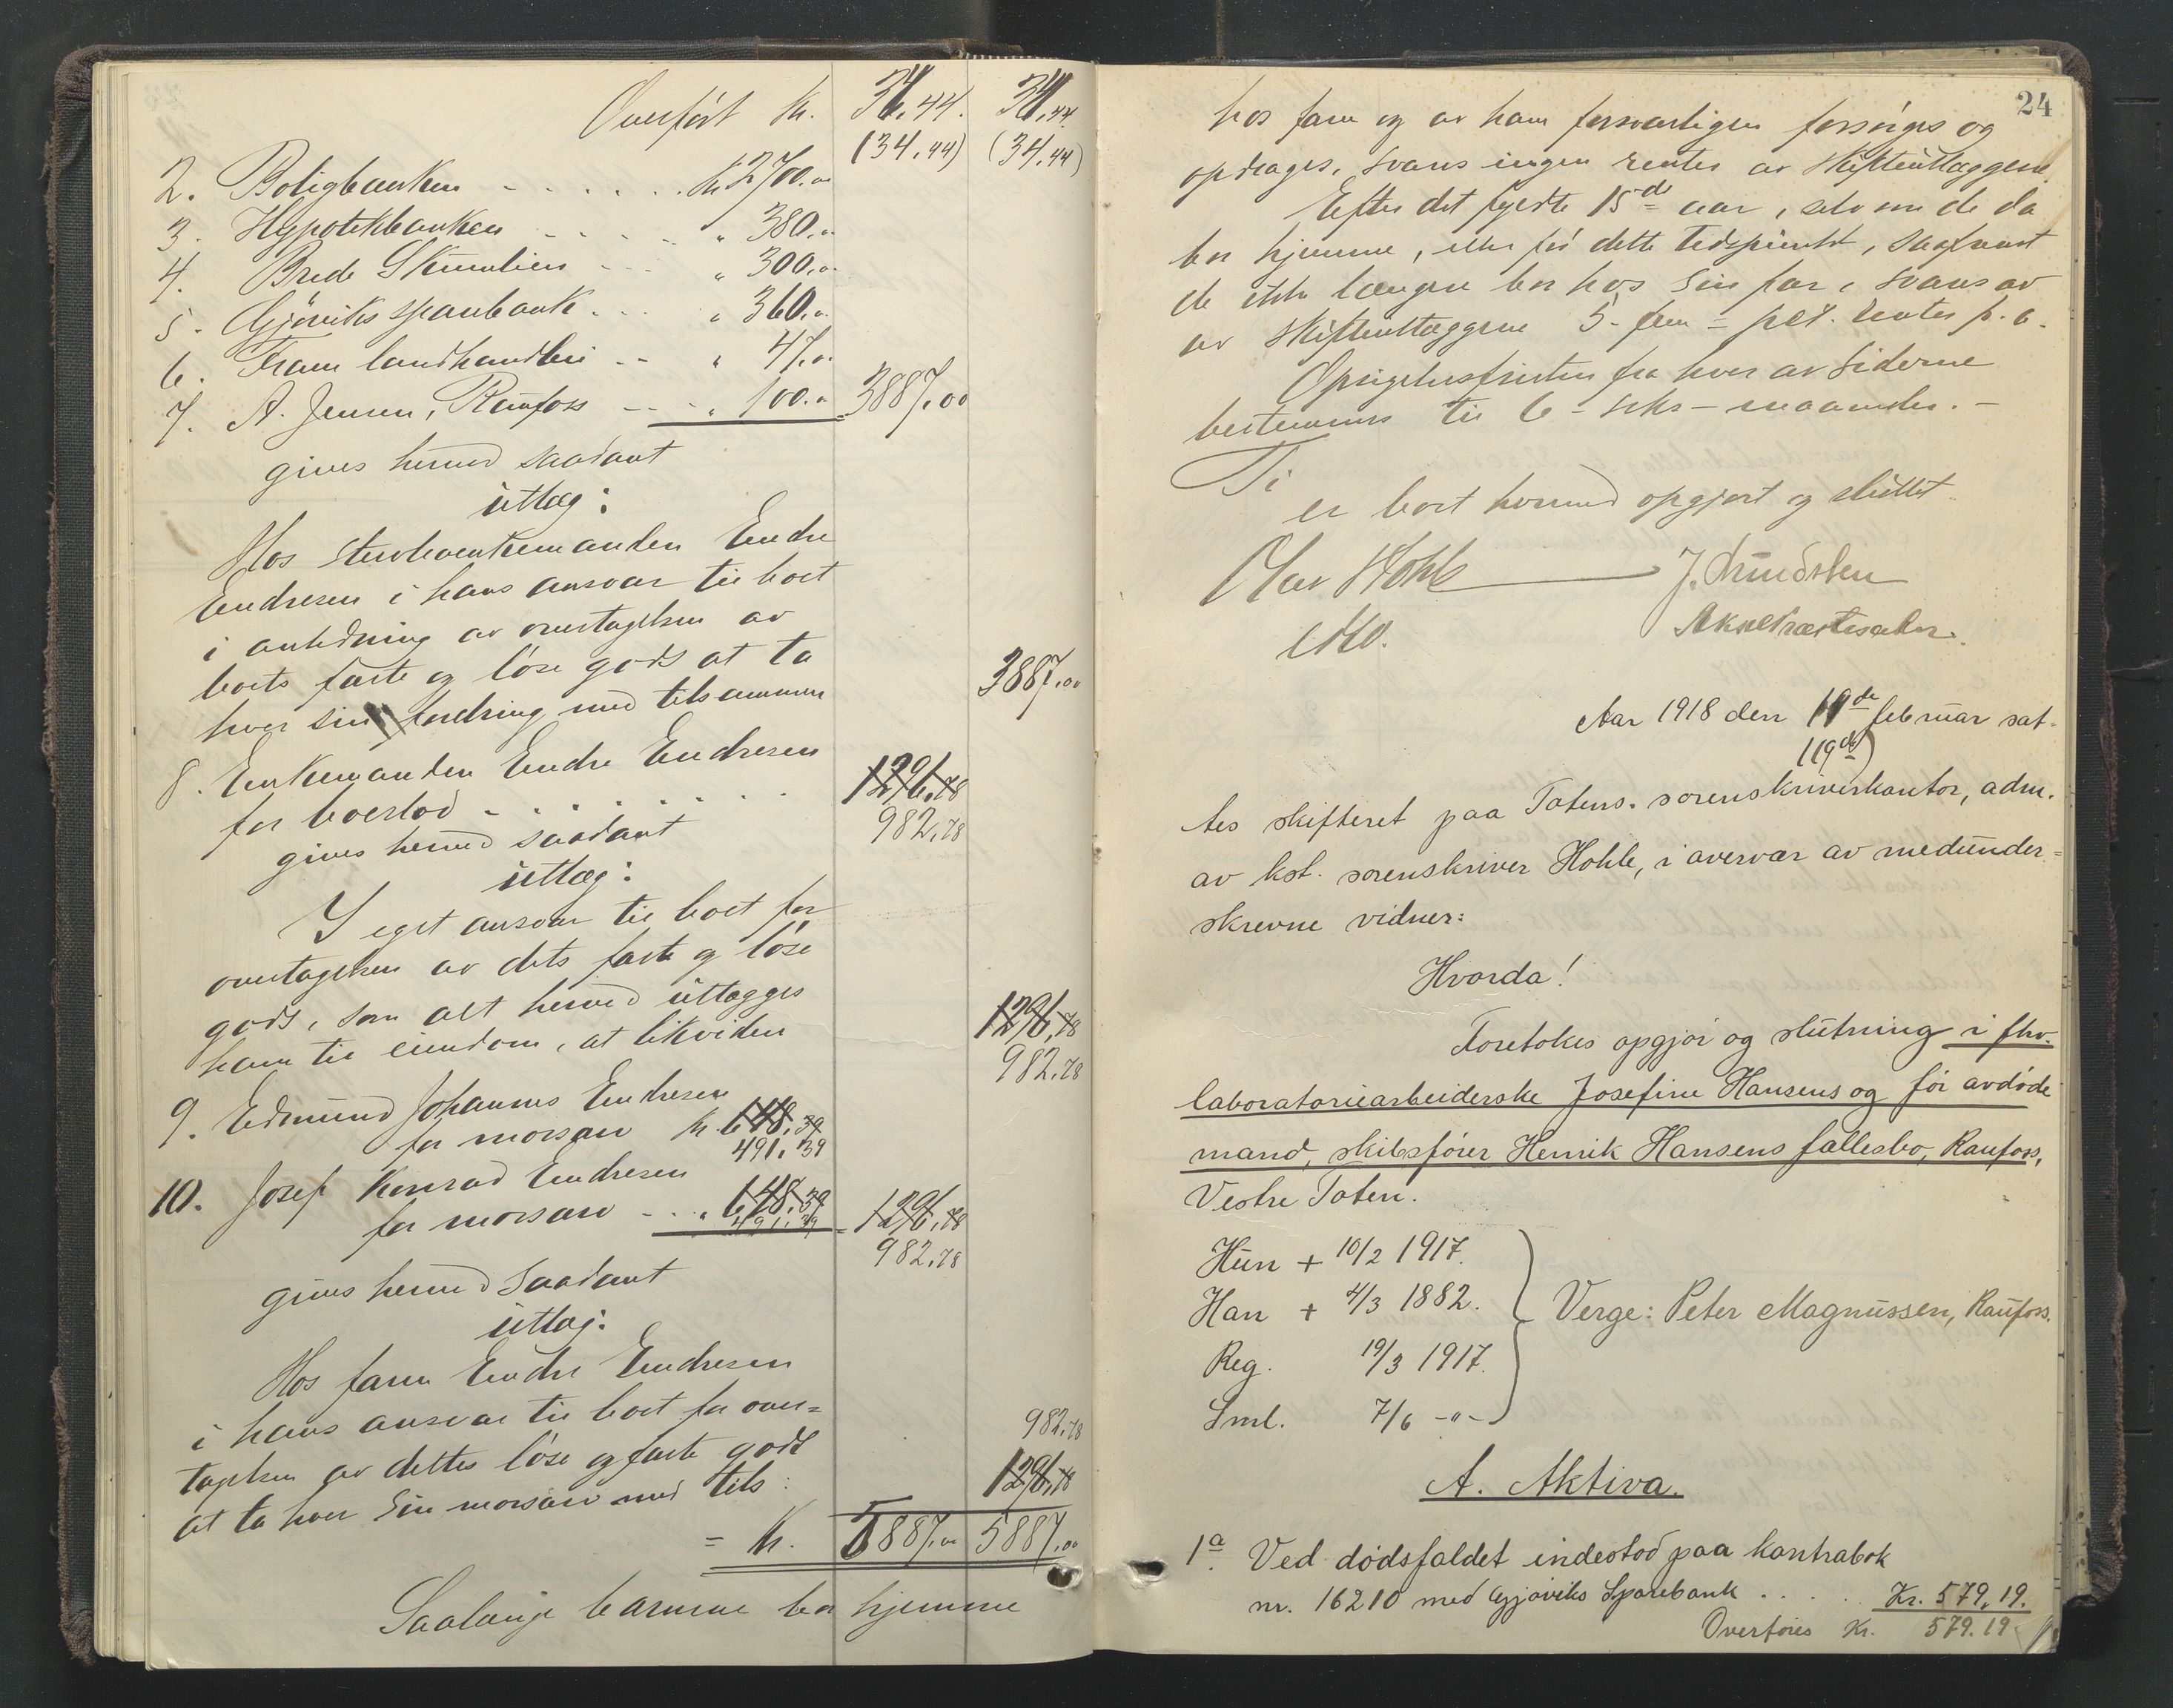 Overført kr. 34,44. 34,44
(34,44) (34,44)
2. Boligbanken - - - - - - kr 2700.00
3. Hypotekbanken - - - - - " 380.00
4. Brede Skumlien - - - " 300.00
5. Gjøviks sparebank. - - " 360.00
6. Fram landhandleri - - " 47.00
7. A. Jensen, Raufoss - - - " 100.00 3887.00
gives herved saadant
utlæg:
Hos sterboenkemanden Endre
Endresen i hans ansvar til boet
i anledning av overtagelsen av
boets faste og løse gods at ta
hver sin fordring med tilsammen 3887.00
8. Enkemanden Endre Endresen
for boeslod - - - - - - - 1296,78
982,78
gives herved saadant
utlæg:
I eget ansvar til boet for
overtagelsen av dets faste og løse
gods, som alt herved utlægges
ham til eiendom, at likvidere 1296,78
982,78
9. Edmund Johannes Endresen
for morsarv kr. 648,39
491,39
10. Josef Konrad Endresen
for morsarv - - " 648,39 1296,78
491,39 982,78
gives herved saadant
utlæg:
Hos faren Endre Endresen
i hans ansvar til boet for over=
tagelsen av dettes løse og faste gods
at ta hver sin morsarv med tils: 982,78
1296,78
= Kr. 5887.00 5887.00
Saalænge barnene bor hjemme
24
hos faren og av ham forsvarligen forsørges og
opdrages, svares ingen renter av skifteutlæggene.
Efter det fyldte 15de aar, selv om de da
bor hjemme, eller før dette tidspunkt, saafremt
de ikke længere bor hos sin far, svares av
av skifteutlæggene 5 - fem = pct. renter p.a.
Opsigelsesfristen fra hver av siderne
bestemmes til 6 - seks - maaneder. -
Ti
er boet hermed opgjort og sluttet.
Olav Hohle J. Lundsten
kst.
Aar 1918 den 19de februar sat-
(19de)
tes skifteret paa Totens sorenskriverkontor, adm.
av kst. sorenskriver Hohle, i overvær av medunder=
skrevne vidner:
Hvorda!
Foretokes opgjør og slutning i fhv.
laboratoriearbeiderske Josefine Hansens og før avdøde
mand, skibsfører Henrik Hansens fællesbo, Raufoss,
Vestre Toten.
Hun + 10/2 1917.
Han + 4/3 1882. Verge: Peter Magnussen, Raufoss.
Reg. 19/3 1917.
Sml. 7/6 -"-
A. Aktiva.
1a. Ved dødsfaldet indestod paa kontrabok
nr. 16210 med Gjøviks Sparebank . . . . . Kr. 579,19.
Overføres Kr. 579.19